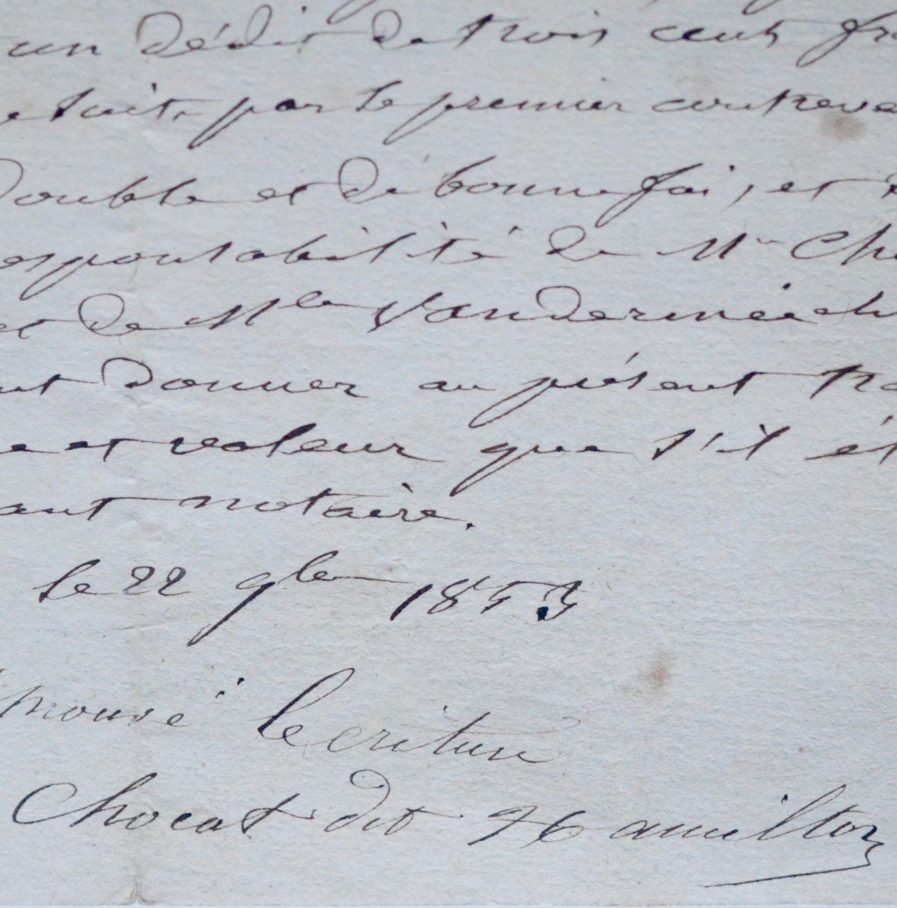 un dédit de trois cent fr
etuit, par le premier contreve
double et de bonne foi, et
esponsabilité de Mr Ch
et de Mlle Vanderméech
nt donner au présent tra
e et valeur que s'il ét
ant notaire.
le 22 9bre 1853
prouvé l'ecriture
Chocat dit Hamilton